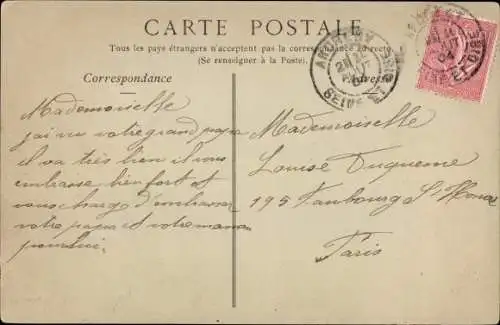 CARTE POSTALE
Tous les pays étrangers n'acceptent pas la correspondance au recto
(Se renseigner à la Poste).
Correspondance
Adresse
Mademoiselle
j'ai vu votre grand papa
il va très bien il vous
embrasse bien fort et
vous charge d'embrasser
votre papa et votre maman
pour lui.
Mademoiselle
Louise Duquenne
195 Faubourg St Honoré
Paris
SEINE ET OISE